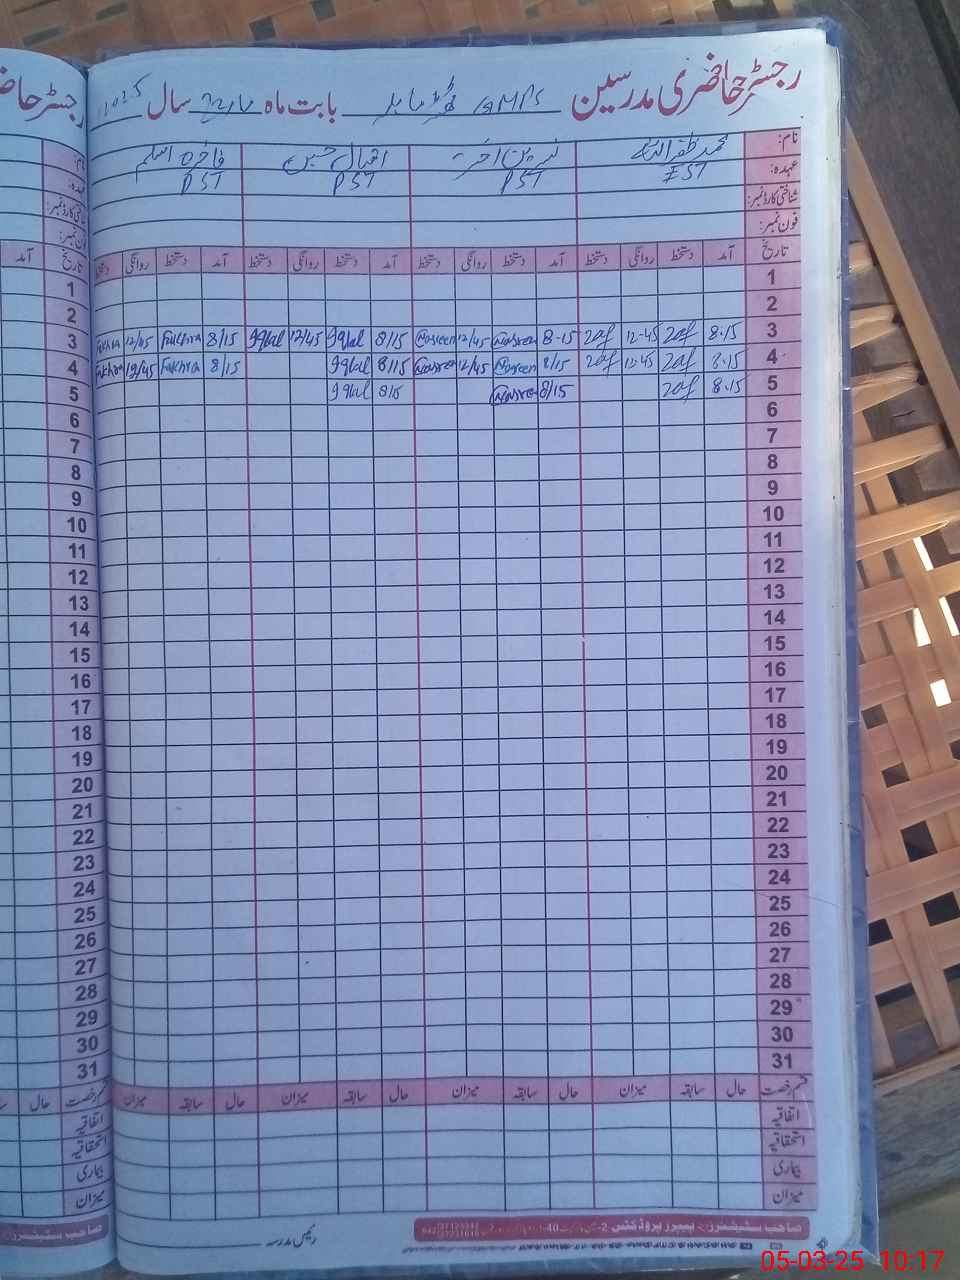 رجسٹر حاضری مدرسین GMPS بابت ماہ مارچ سال 2025
نام: محمد ظفر اللہ نسرین اختر اقبال حسین فاخرہ اسلم
عہدہ: EST PST PST PST
شناختی کارڈ نمبر:
فون نمبر:
تاریخ آمد دستخط روانگی دستخط آمد دستخط روانگی دستخط آمد دستخط روانگی دستخط آمد دستخط روانگی دستخط
1
2
3 8.15 Zaf 12-45 Zaf 8-15 Nasreen 12/45 Nasreen 8/15 Iqbal 12/45 Iqbal 8/15 Fakhra 12/45 Fakhra
4 8.15 Zaf 12.45 Zaf 8/15 Nasreen 12/45 Nasreen 8/15 Iqbal 8/15 Fakhra 12/45 Fakhra
5 8.15 Zaf 8/15 Nasreen 8/15 Iqbal
6
7
8
9
10
11
12
13
14
15
16
17
18
19
20
21
22
23
24
25
26
27
28
29
30
31
قسم رخصت حال سابقہ میزان حال سابقہ میزان حال سابقہ میزان حال سابقہ میزان
اتفاقیہ
استحقاقیہ
بیماری
میزان
صاحب سٹیشنرز، پیپرز پروڈکٹس
رئیس مدرسہ
05-03-25 10:17